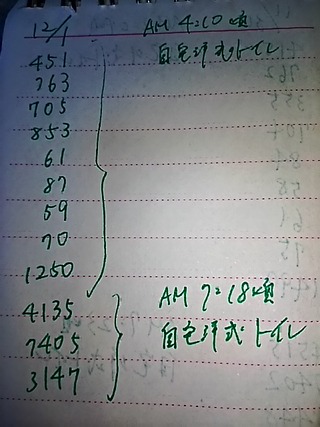 12/1 AM 4:10 頃
451 自宅洋式トイレ
763
705
853
61
87
59
70
1250
4135 AM 7:18頃
7405 自宅洋式トイレ
3147